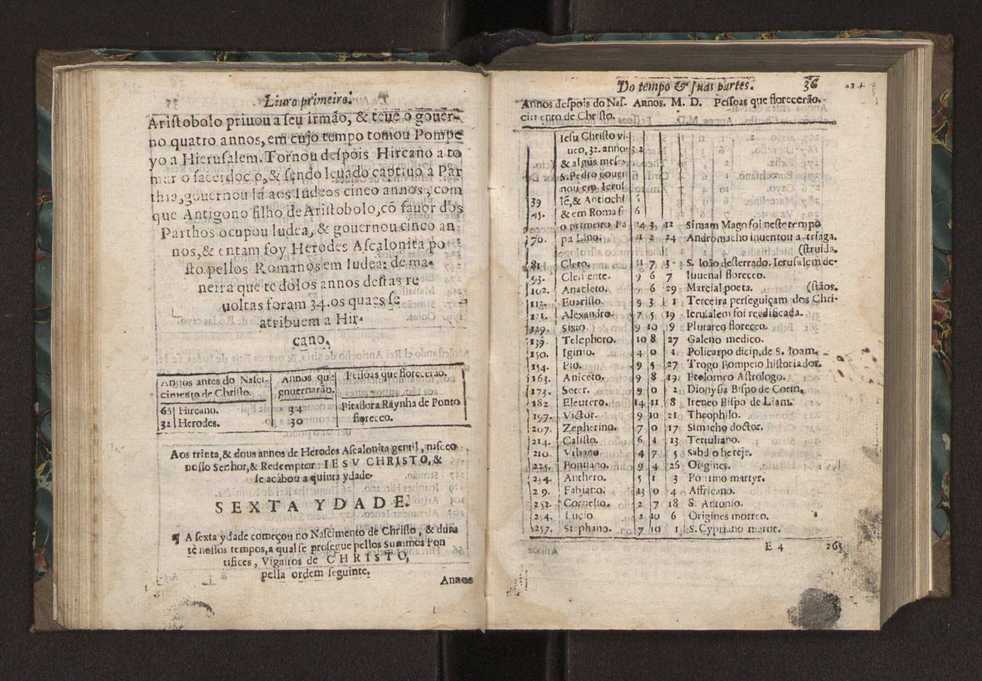 Liuro primeiro.
Aristobolo priuou a seu irmão, & teue o gouer-
no quatro annos, em cujo tempo tomou Pompe
yo a Hierusalem. Tornou despois Hircano a to
mar o sacerdocio, & sendo leuado captiuo a Par
thia, gouernou lá aos Iudeos cinco annos, com
que Antigono filho de Aristobolo, cõ fauor dos
Parthos ocupou Iudea, & gouernou cinco an
nos, & entam foy Herodes Ascalonita po
sto pellos Romanos em Iudea: de ma-
neira que todolos annos destas re
uoltas foram 34. os quaes se
atribuem a Hir-
cano.
Annos antes do Nasci-
cimento de Christo. Annos que
gouernarão. Pessoas que florecerão.
65 Hircano. 34 Pitadora Raynha de Ponto
31 Herodes. 30 floreceo.
Aos trinta, & dous annos de Herodes Ascalonita gentil, nasceo
nosso Senhor, & Redemptor IESV CHRISTO, &
se acabou a quinta ydade.
SEXTA YDADE.
¶ A sexta ydade começou no Nascimento de Christo, & dura
tè nossos tempos, a qual se prosegue pellos Summos Pon
tifices, Vigairos de CHRISTO,
pella ordem seguinte.
Annos
Do tempo & suas partes. 36
Annos despois do Nas- Annos. M. D. Pessoas que florecerão.
cimento de Christo.
Iesu Christo vi-
uco, 32. anno
& algũs meses
S. Pedro gouer
nou em Ierusa
39 lẽ, & Antiochi
& em Roma
o primeiro Pa 3 12 Simam Mago foi neste tempo
70. pa Lino. 11 2 24 Andromacho inuentou a triaga.
(struida.
81 Cleto. 11 7 3 S. Ioão desterrado. Ierusalem de-
93. Clemente. 9 6 7 Iuuenal floreceo.
102. Anacleto. 9 6 29 Marcial poeta. (stãos.
112. Euaristo. 9 3 1 Terceira perseguiçam dos Chri-
121. Alexandro. 7 5 19 Ierusalem foi reedificada.
129. Sisto 9 10 9 Plutarco floreceo.
139. Telephoro. 10 8 27 Galeno medico.
150. Iginio. 4 0 1 Policarpo dicip. de S. Ioam.
154. Pio. 9 5 27 Trogo Pompeio historiador.
163. Aniceto. 9 8 19 Ptolomeo Astrologo.
173. Soter. 9 0 2 Dionysia Bispo de Corin.
182. Eleutero. 14 11 8 Ireneo Bispo de Liam.
197. Victor. 9 10 21 Theophilo.
207. Zepherino. 7 0 17 Simacho doctor.
214. Calisto. 6 1 13 Tertuliano.
210. Vrbano 4 7 5 Sabelio hereje.
225. Pontiano. 9 4 26 Origines.
234. Anthero. 5 1 3 Pontimo martyr.
2 9. Fabiano. 23 0 4 Affricano.
252. Cornelio. 2 7 18 S. Antonio.
254. Lucio 2 10 6 Origines morreo.
257. Stephano. 7 10 1 S. Cypriano martir.
E 4 265